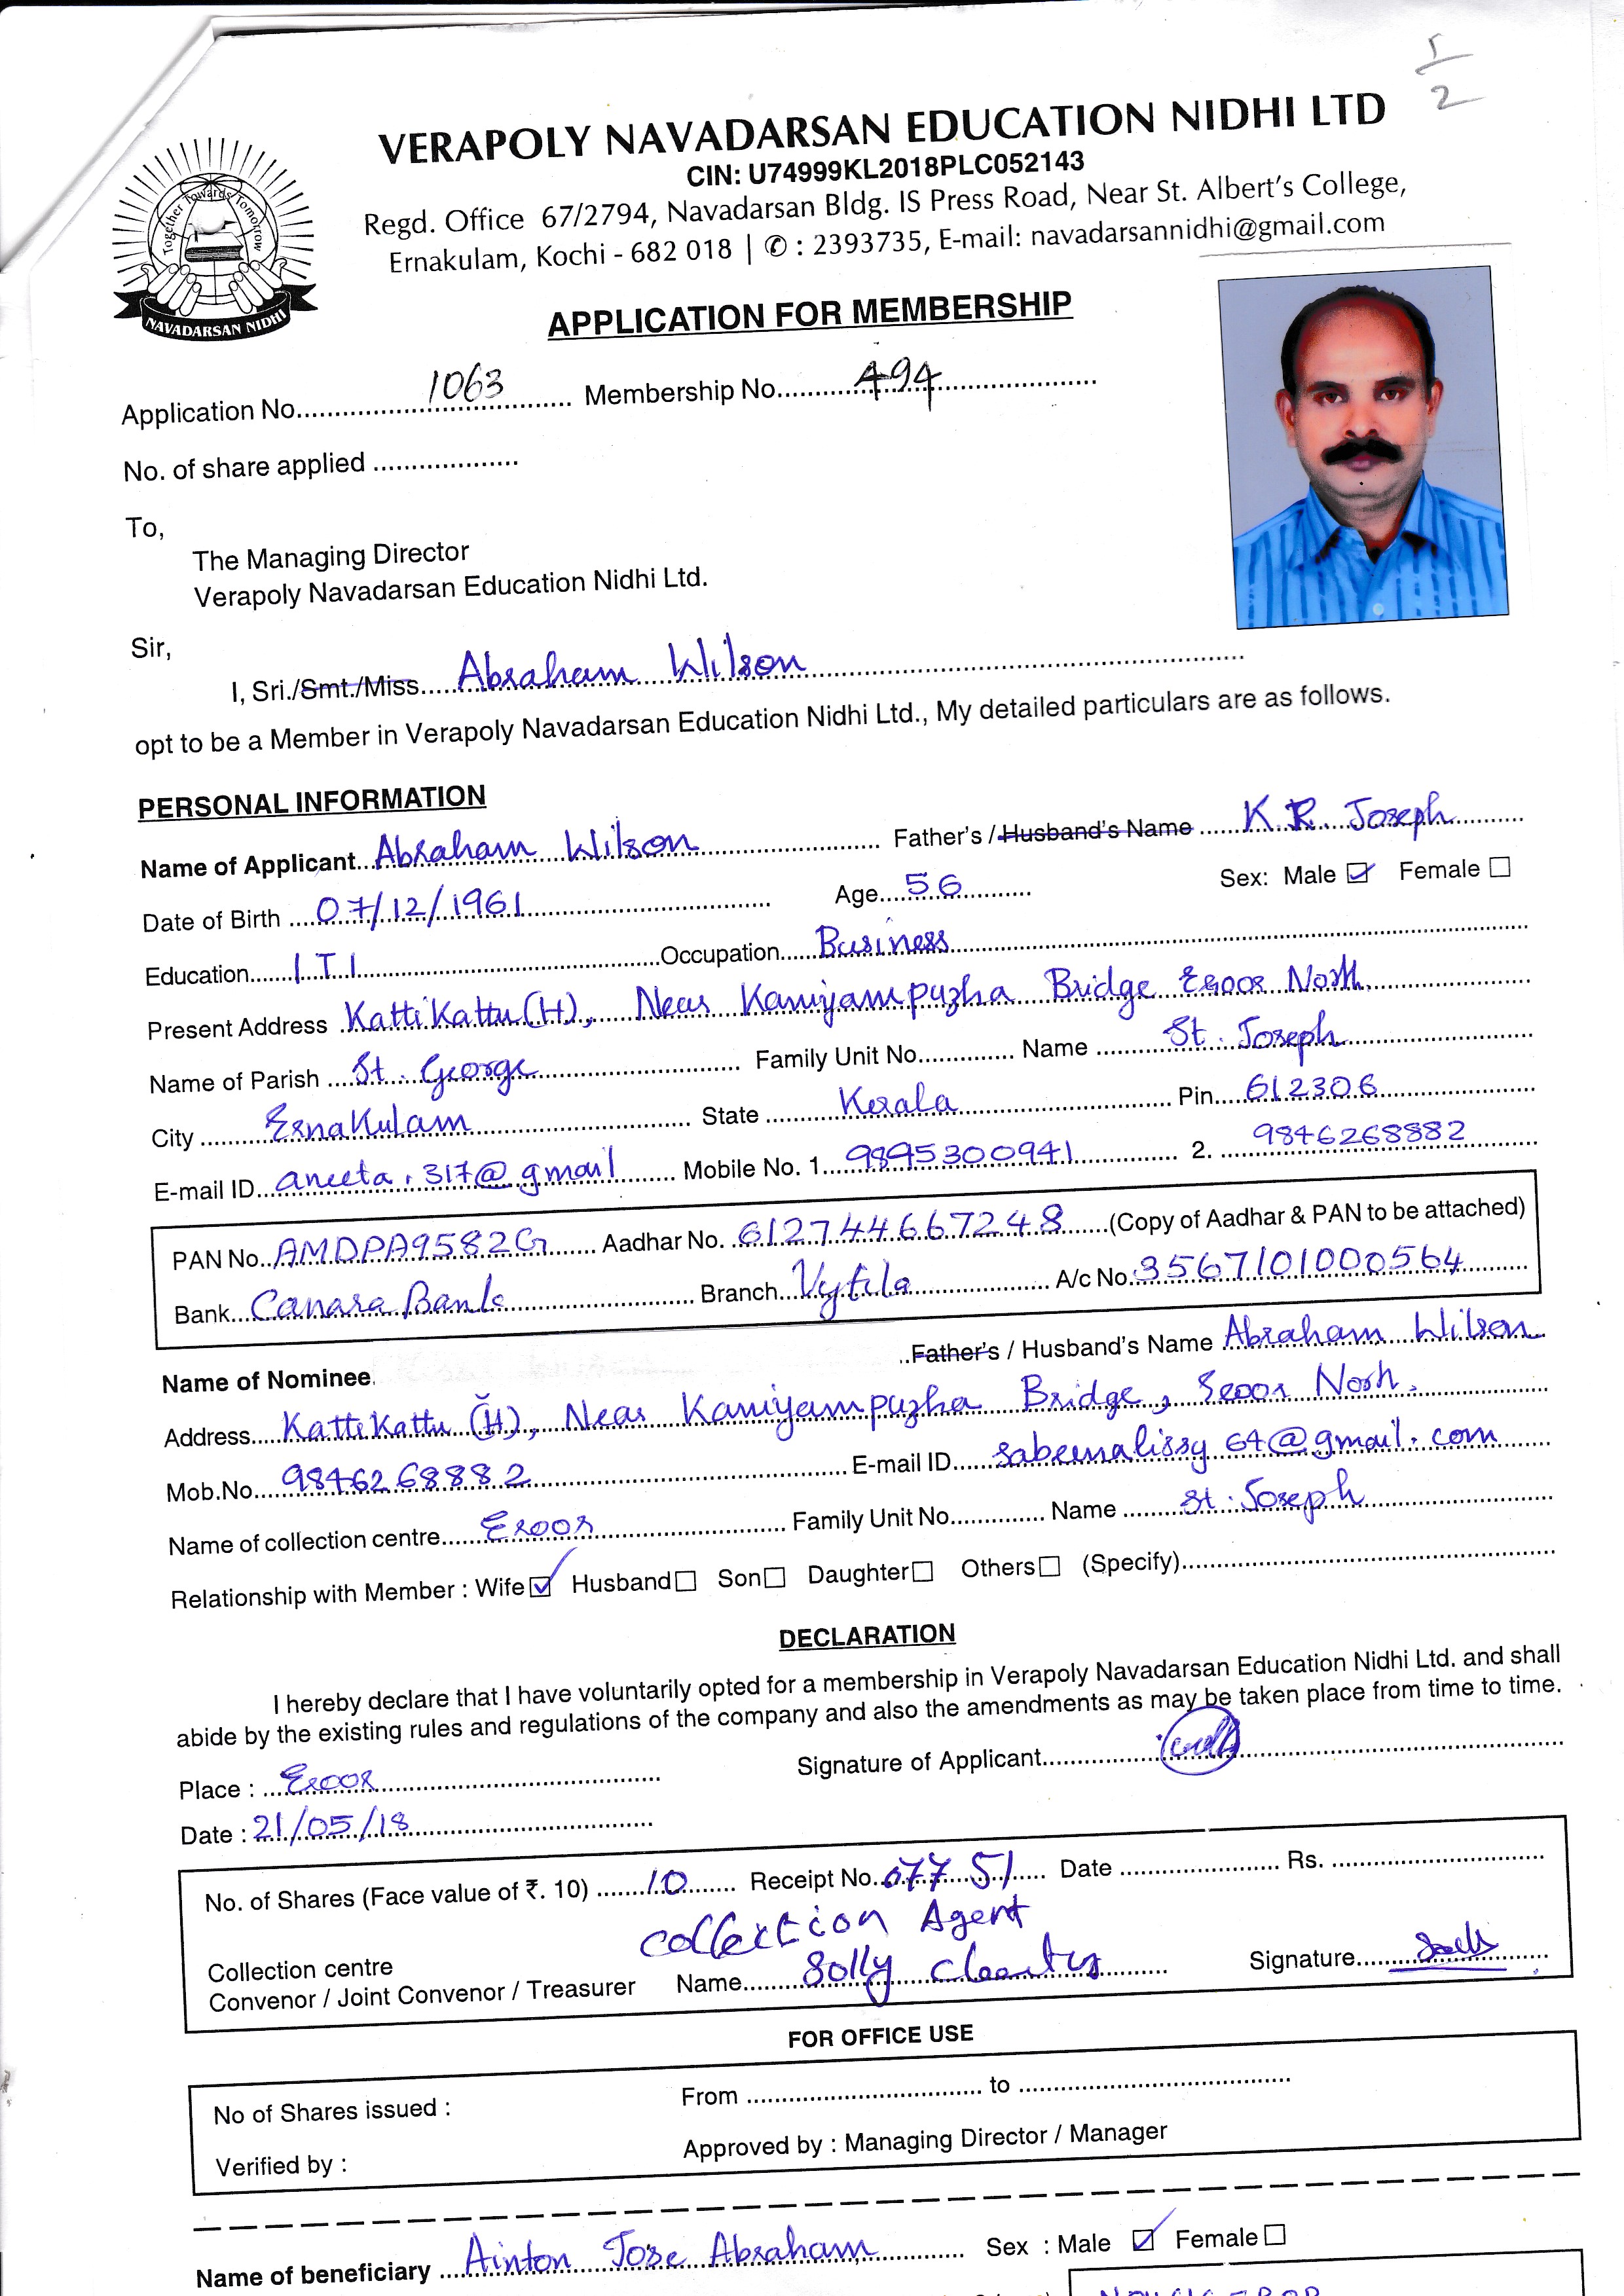 1/2
VERAPOLY NAVADARSAN EDUCATION NIDHI LTD
CIN: U74999KL2018PLC052143
Regd. Office 67/2794, Navadarsan Bldg. IS Press Road, Near St. Albert's College,
Ernakulam, Kochi - 682 018 | ✆ : 2393735, E-mail: navadarsannidhi@gmail.com
Together Towards Tomorrow
NAVADARSAN NIDHI
APPLICATION FOR MEMBERSHIP
Application No. 1063 Membership No. 494
No. of share applied
To,
The Managing Director
Verapoly Navadarsan Education Nidhi Ltd.
Sir,
I, Sri./Smt./Miss Abraham Wilson
opt to be a Member in Verapoly Navadarsan Education Nidhi Ltd., My detailed particulars are as follows.
PERSONAL INFORMATION
Name of Applicant Abraham Wilson Father's / Husband's Name K.R. Joseph
Date of Birth 07/12/1961 Age 56 Sex: Male ☑ Female ☐
Education I.T.I Occupation Business
Present Address Kattikattu (H), Near Kaniyampuzha Bridge Eroor North
Name of Parish St. George Family Unit No. Name St. Joseph
City Ernakulam State Kerala Pin 612306
E-mail ID aneeta.317@gmail Mobile No. 1. 9895300941 2. 9846268882
PAN No. AMDPA9582G Aadhar No. 612744667248 (Copy of Aadhar & PAN to be attached)
Bank Canara Bank Branch Vytila A/c No. 3567101000564
Name of Nominee Father's / Husband's Name Abraham Wilson
Address Kattikattu (H), Near Kaniyampuzha Bridge, Eroor Norh.
Mob.No. 9846268882 E-mail ID sabeenalissy64@gmail.com
Name of collection centre Eroor Family Unit No. Name St. Joseph
Relationship with Member : Wife ☑ Husband ☐ Son ☐ Daughter ☐ Others ☐ (Specify)
DECLARATION
I hereby declare that I have voluntarily opted for a membership in Verapoly Navadarsan Education Nidhi Ltd. and shall
abide by the existing rules and regulations of the company and also the amendments as may be taken place from time to time.
Place : Eroor Signature of Applicant
Date : 21/05/18
No. of Shares (Face value of ₹. 10) 10 Receipt No. 07751 Date Rs.
Collection Agent
Collection centre
Convenor / Joint Convenor / Treasurer Name Solly Signature
FOR OFFICE USE
No of Shares issued : From to
Verified by : Approved by : Managing Director / Manager
Name of beneficiary Ainton Jose Abraham Sex : Male ☑ Female ☐